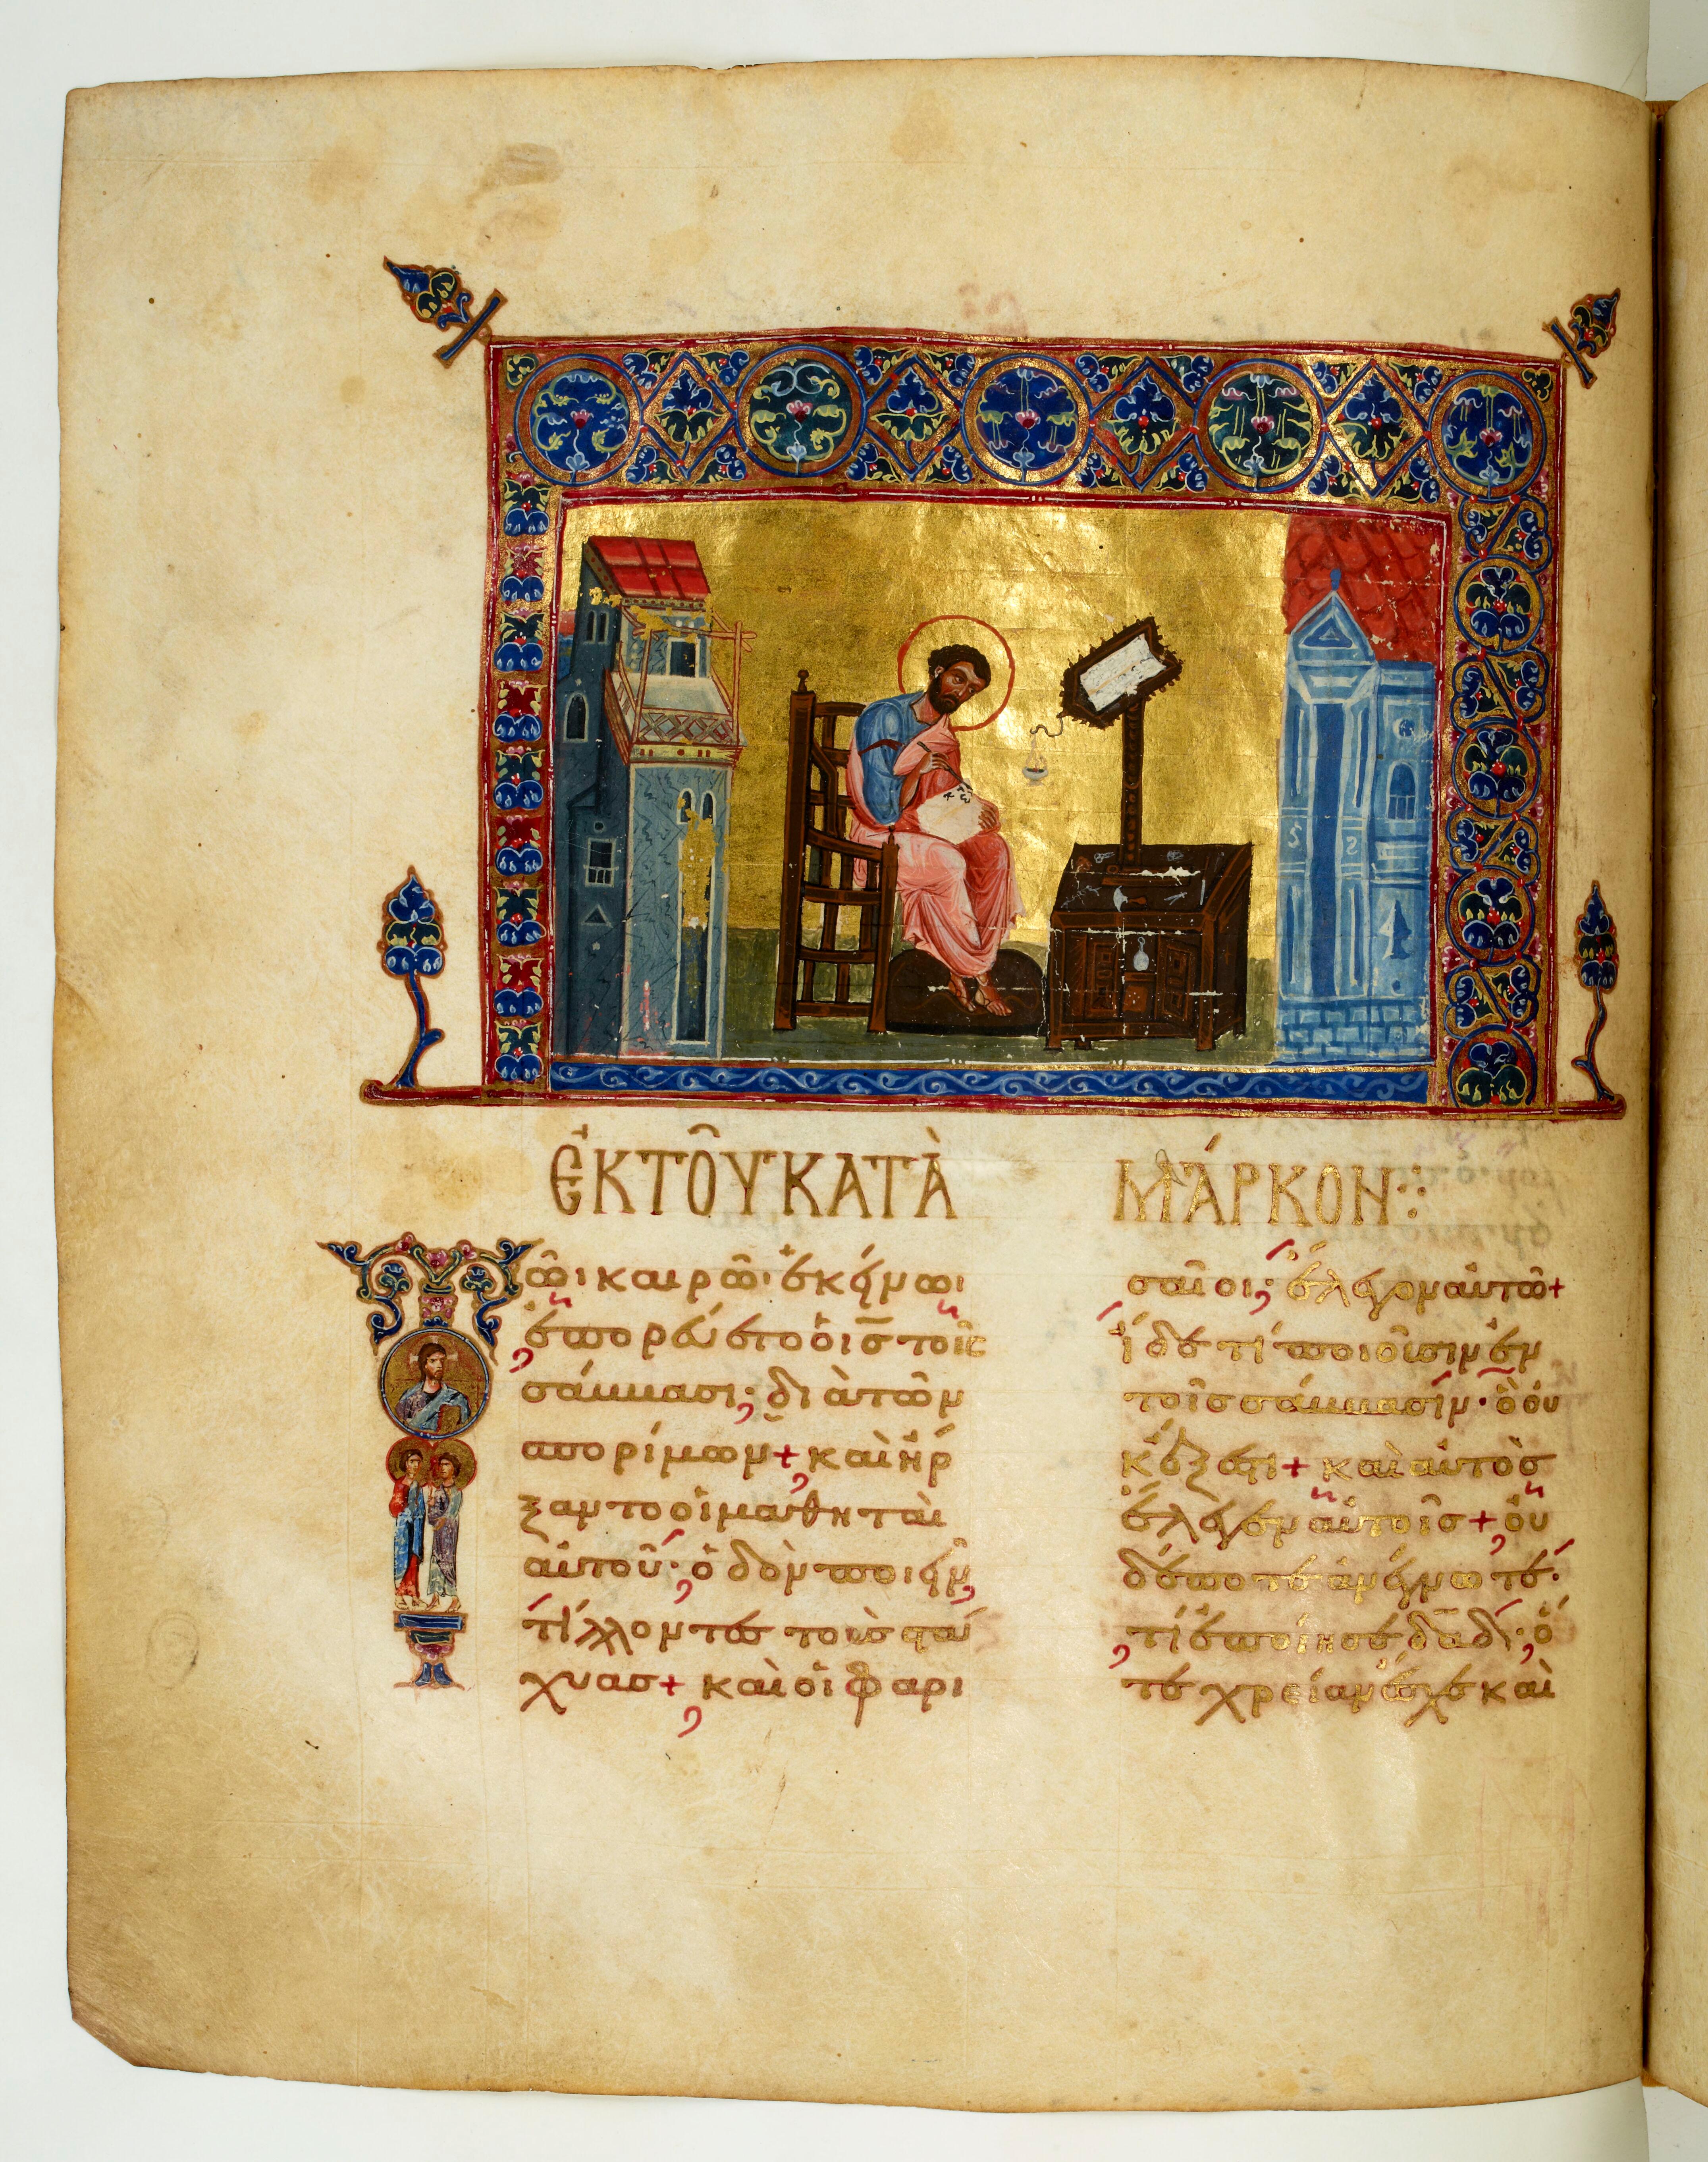 ἐκ τοῦ κατὰ Μάρκον
Τῶι καιρῶι ἐκείνωι
ἐπορεύετο ὁ ι̅ς̅ τοῖς
σάββασι· διὰ τῶν
σπορίμων + καὶ ἤρ
ξαντο οἱ μαθηταὶ
αὐτοῦ· ὁδὸν ποιεῖν
τίλλοντες τοὺς στά
χυας + καὶ οἱ φαρι
σαῖοι· ἔλεγον αὐτῶ +
ἴδε τί ποιοῦσιν ἐν
τοῖς σάββασιν· ὃ οὐ
κ ἔξεστι + καὶ αὐτὸς
ἔλεγεν αὐτοῖς + οὐ
δέποτε ἀνέγνωτε·
τί ἐποίησε δ̅α̅δ̅· ὅ
τε χρείαν ἔσχε καὶ